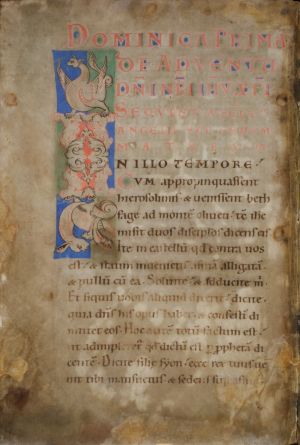 DOMINICA PRIMA
DE ADVENTU
DNI
SECU
N ILLO TEMPORE
CUM appropinquassent
hierosolimis & uenissent beth
fage ad monte oliueti tc ihc
misit duos discipłos dicens eis
Ite in castellu qd contra uos
est & statim inuenietis asina alligata
& pullu cu ea Soluite & adducite m
Et siquis uobis aliquid dixerit dicite
quia dns his opus habet & confesti di
mittet eos Hoc aute totu factum est
ut adimpler& qd dictu est p ppheta di
cente Dicite filie syon ecce rex tuus ue
nit tibi mansuetus & sedens sup